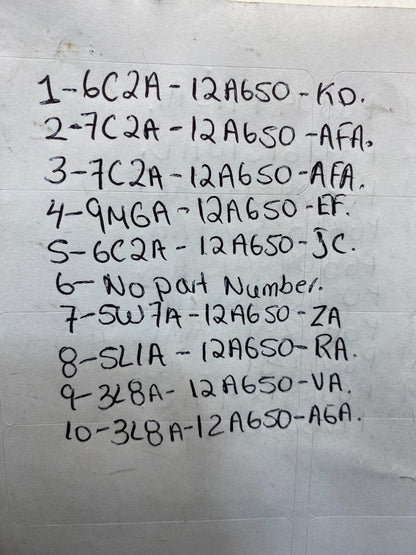 1-6C2A-12A650-KD.
2-7C2A-12A650-AFA.
3-7C2A-12A650-AFA.
4-9M6A-12A650-EF.
5-6C2A-12A650-JC.
6-No part Number.
7-5W7A-12A650-ZA
8-5L1A-12A650-RA.
9-3L8A-12A650-VA.
10-3L8A-12A650-AGA.